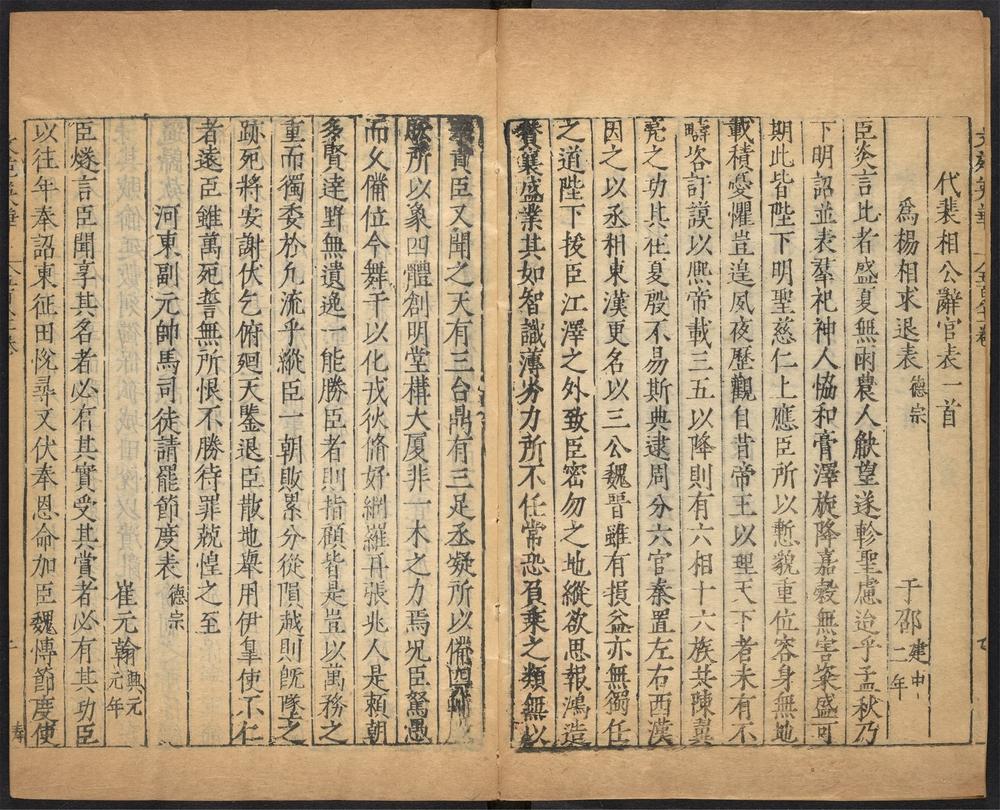 代裴相公辭官表一首
為楊相求退表 德宗 于邵 建中二年
臣炎言比者盛夏無雨農人觖望遂軫聖慮迨乎孟秋乃
下明詔並表羣祀神人恊和膏澤旋降嘉穀無害粢盛可
期此皆陛下明聖慈仁上應臣所以慙貌重位容身無地
載積憂懼豈遑夙夜歷觀自昔帝王以理天下者未有不
疇咨訏謨以熈帝載三五以降則有六相十六族共陳翼
亮之功其在夏殷不易斯典逮周分六官秦置左右西漢
因之以丞相東漢更名以三公魏晉雖有損益亦無獨任
之道陛下拔臣江澤之外致臣密勿之地縱欲思報鴻造
賛襄盛業其如智識薄劣力所不任常恐負乘之類無以
責臣又聞之天有三台鼎有三足丞疑所以備四
所以象四體創明堂構大厦非一木之力焉况臣駑愚
而久備位今舞干以化戎狄脩好網羅再張兆人是賴朝
多賢達野無遺逸一能勝臣者則指顧皆是豈以萬務之
重而獨委於凡流乎縱臣一朝敗累分從隕越則旣墜之
跡死將安謝伏乞俯廻天鑒退臣散地舉用伊皐使不仁
者遠臣雖萬死誓無所恨不勝待罪兢惶之至
河東副元帥馬司徒請罷節度表 德宗 崔元翰 興元元年
臣燧言臣聞享其名者必有其實受其賞者必有其功臣
以往年奉詔東征田悅尋又伏奉恩命加臣魏博節度使